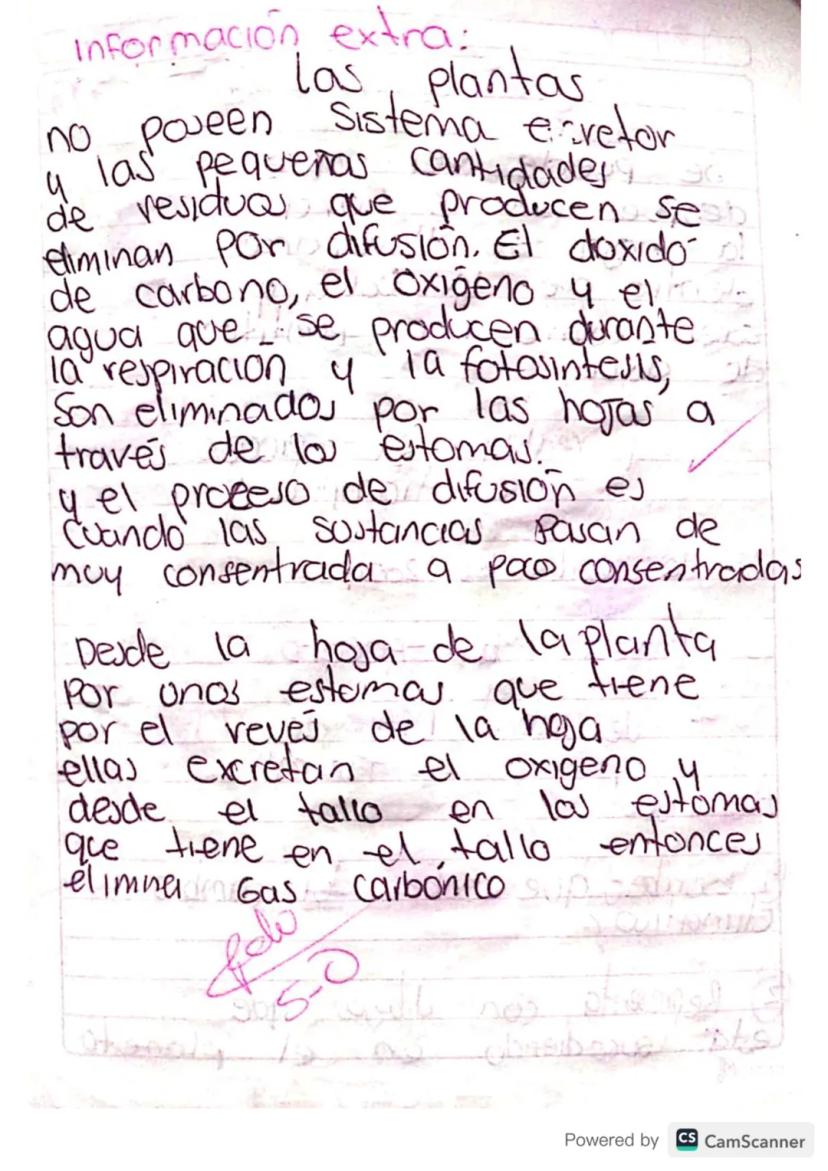 Información extra:
las plantas
no poseen sistema excretor
y las pequeñas cantidades
de residuos que producen se
eliminan por difusión. El dioxido
de carbono, el oxigeno y el
agua que se producen durante
la respiracion y la fotosintesis,
son eliminados por las hojas a
través de los estomas.
y el proceso de difusión es
cuando las sustancias pasan de
muy consentrada a poco consentradas
Desde la hoja de la planta
por unos estomas que tiene
por el revés de la hoja
ellas excretan el oxigeno y
desde el tallo en los estomas
que tiene en el tallo entonces
elimina Gas carbónico
5-0
Powered by CS CamScanner